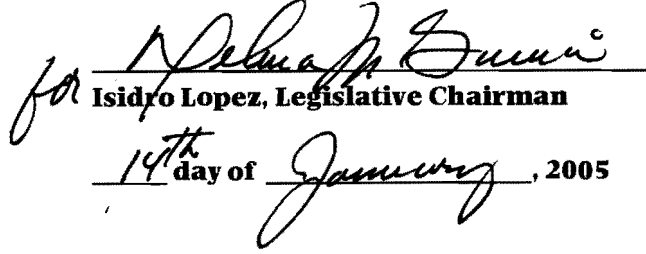 Delma M
for
Isidro Lopez, Legislative Chairman
14th day of January, 2005